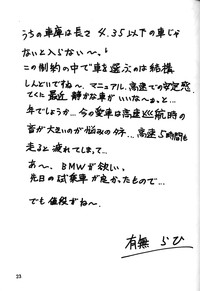 うちの車庫は長さ4.35以下の車じゃ
ないと入らない〜。
この制約の中で車を選ぶのは結構
しんどいですね〜。マニュアル、高速での安定感、
てくに最近 静かな車がいいな〜。と…
年でしょうか…今の愛車は高速巡航時の
音が大きいのが悩みのタネ…高速5時間も
走ると疲れてしまって…
あ〜、BMWが欲しい。
先日の試乗車が良かったもので…
でも値段がね〜
有無 らひ
23